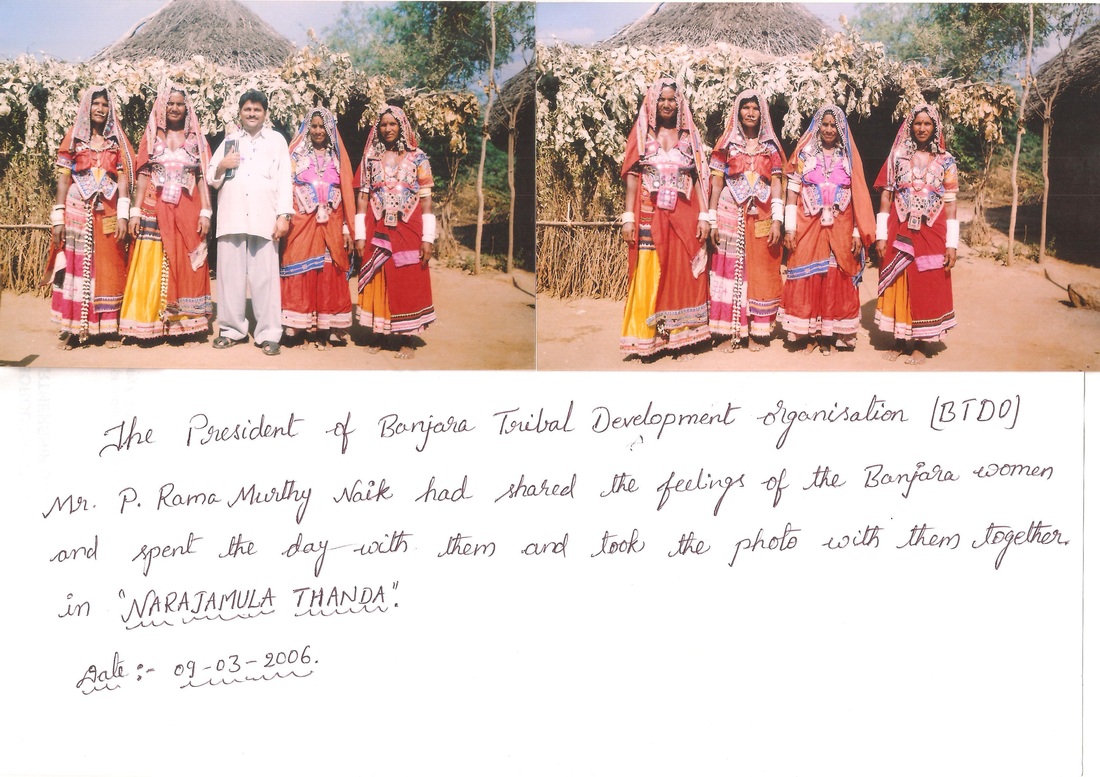 The President of Banjara Tribal Development organisation (BTDO)
Mr. P. Rama Murthy Naik had shared the feelings of the Banjara women
and spent the day with them and took the photo with them together.
in "NARAJAMULA THANDA".
Date :- 09-03-2006.